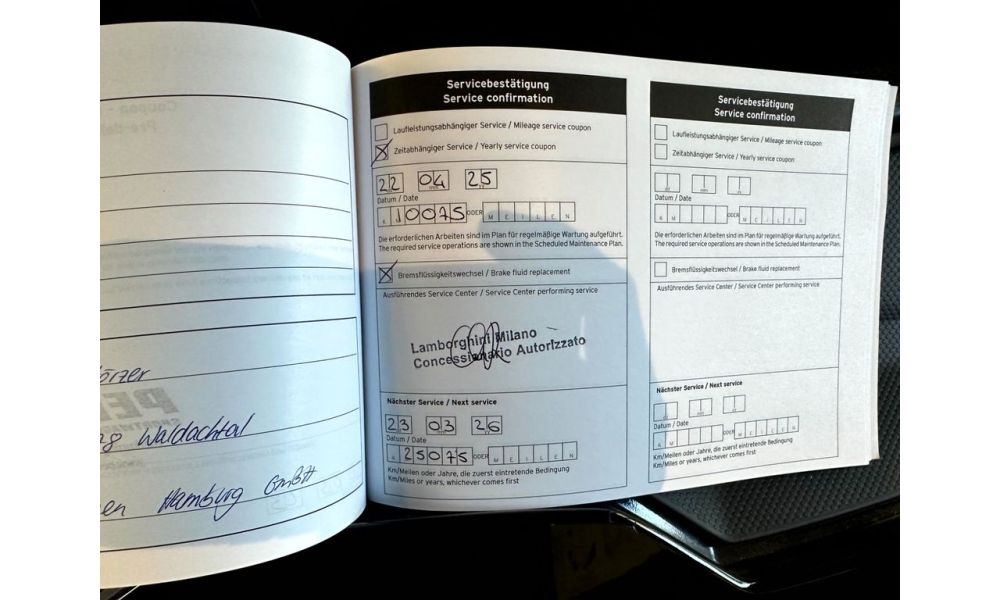 Waldachtal
Hamburg GmbH
Servicebestätigung
Service confirmation
Laufleistungsabhängiger Service / Mileage service coupon
Zeitabhängiger Service / Yearly service coupon
22 04 25
Datum / Date
10075 ODER MEILEN
Die erforderlichen Arbeiten sind im Plan für regelmäßige Wartung aufgeführt.
The required service operations are shown in the Scheduled Maintenance Plan.
Bremsflüssigkeitswechsel / Brake fluid replacement
Ausführendes Service Center / Service Center performing service
Lamborghini Milano
Concessionario Autorizzato
Nächster Service / Next service
23 03 26
Datum / Date
25075 ODER MEILEN
Km/Meilen oder Jahre, die zuerst eintretende Bedingung
Km/Miles or years, whichever comes first
Servicebestätigung
Service confirmation
Laufleistungsabhängiger Service / Mileage service coupon
Zeitabhängiger Service / Yearly service coupon
Datum / Date
KM ODER MEILEN
Die erforderlichen Arbeiten sind im Plan für regelmäßige Wartung aufgeführt.
The required service operations are shown in the Scheduled Maintenance Plan.
Bremsflüssigkeitswechsel / Brake fluid replacement
Ausführendes Service Center / Service Center performing service
Nächster Service / Next service
Datum / Date
KM ODER MEILEN
Km/Meilen oder Jahre, die zuerst eintretende Bedingung
Km/Miles or years, whichever comes first